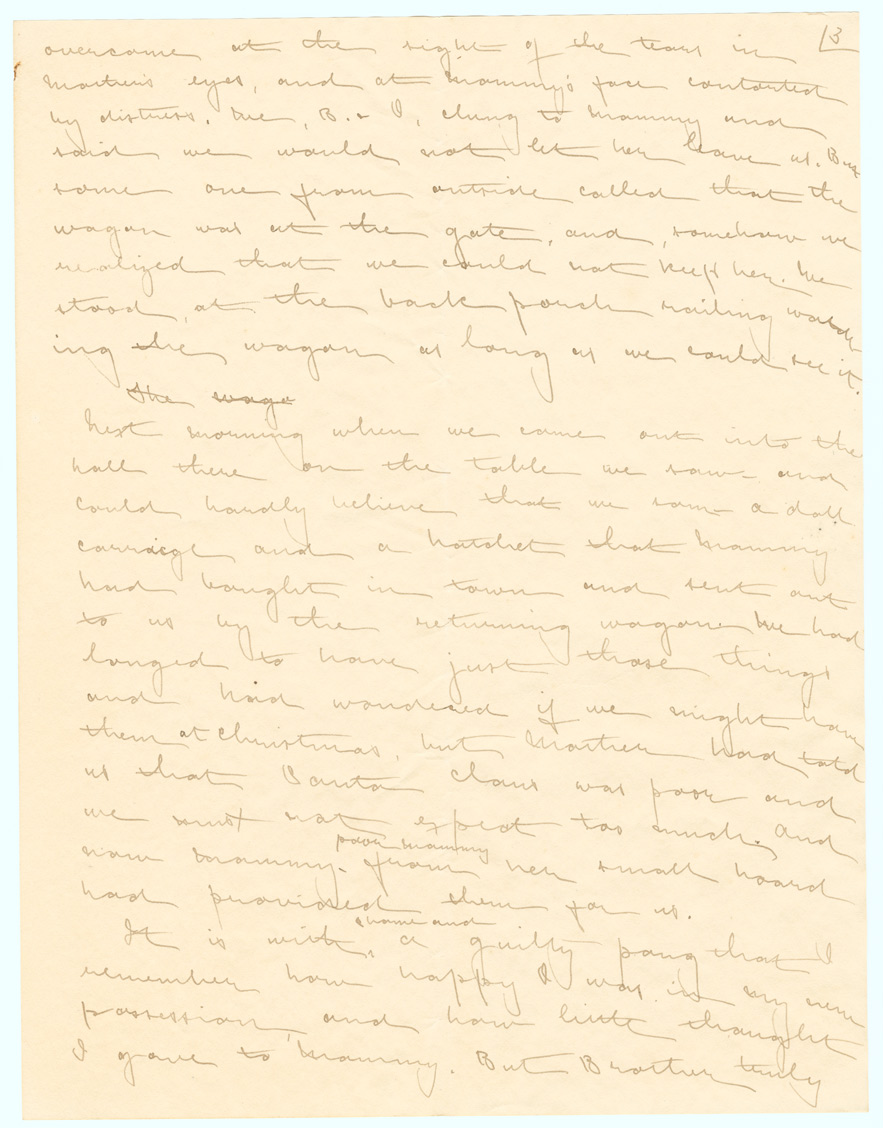 13
overcome at the sight of the tears in
Mother's eyes, and at Mammy's face contorted
by distress. We, B. & I, clung to Mammy and
said we would not let her leave us. But
some one from outside called that the
wagon was at the gate, and, somehow we
realized that we could not keep her. We
stood, at the back porch railing watch-
ing the wagon as long as we could see it.
The wago
Next morning when we came out into the
hall there on the table we saw - and
could hardly believe that we saw - a doll
carriage and a hatchet that Mammy
had bought in town and sent out
to us by the returning wagon. We had
longed to have just those things
and had wondered if we might have
them at Christmas, but Mother had told
us that Santa Claus was poor and
we must not expect too much. And
now Mammy - poor Mammy from her small hoard
had provided them for us.
It is with shame and a guilty pang that I
remember how happy I was in my new
possession and how little thought
I gave to Mammy. But Brother truly